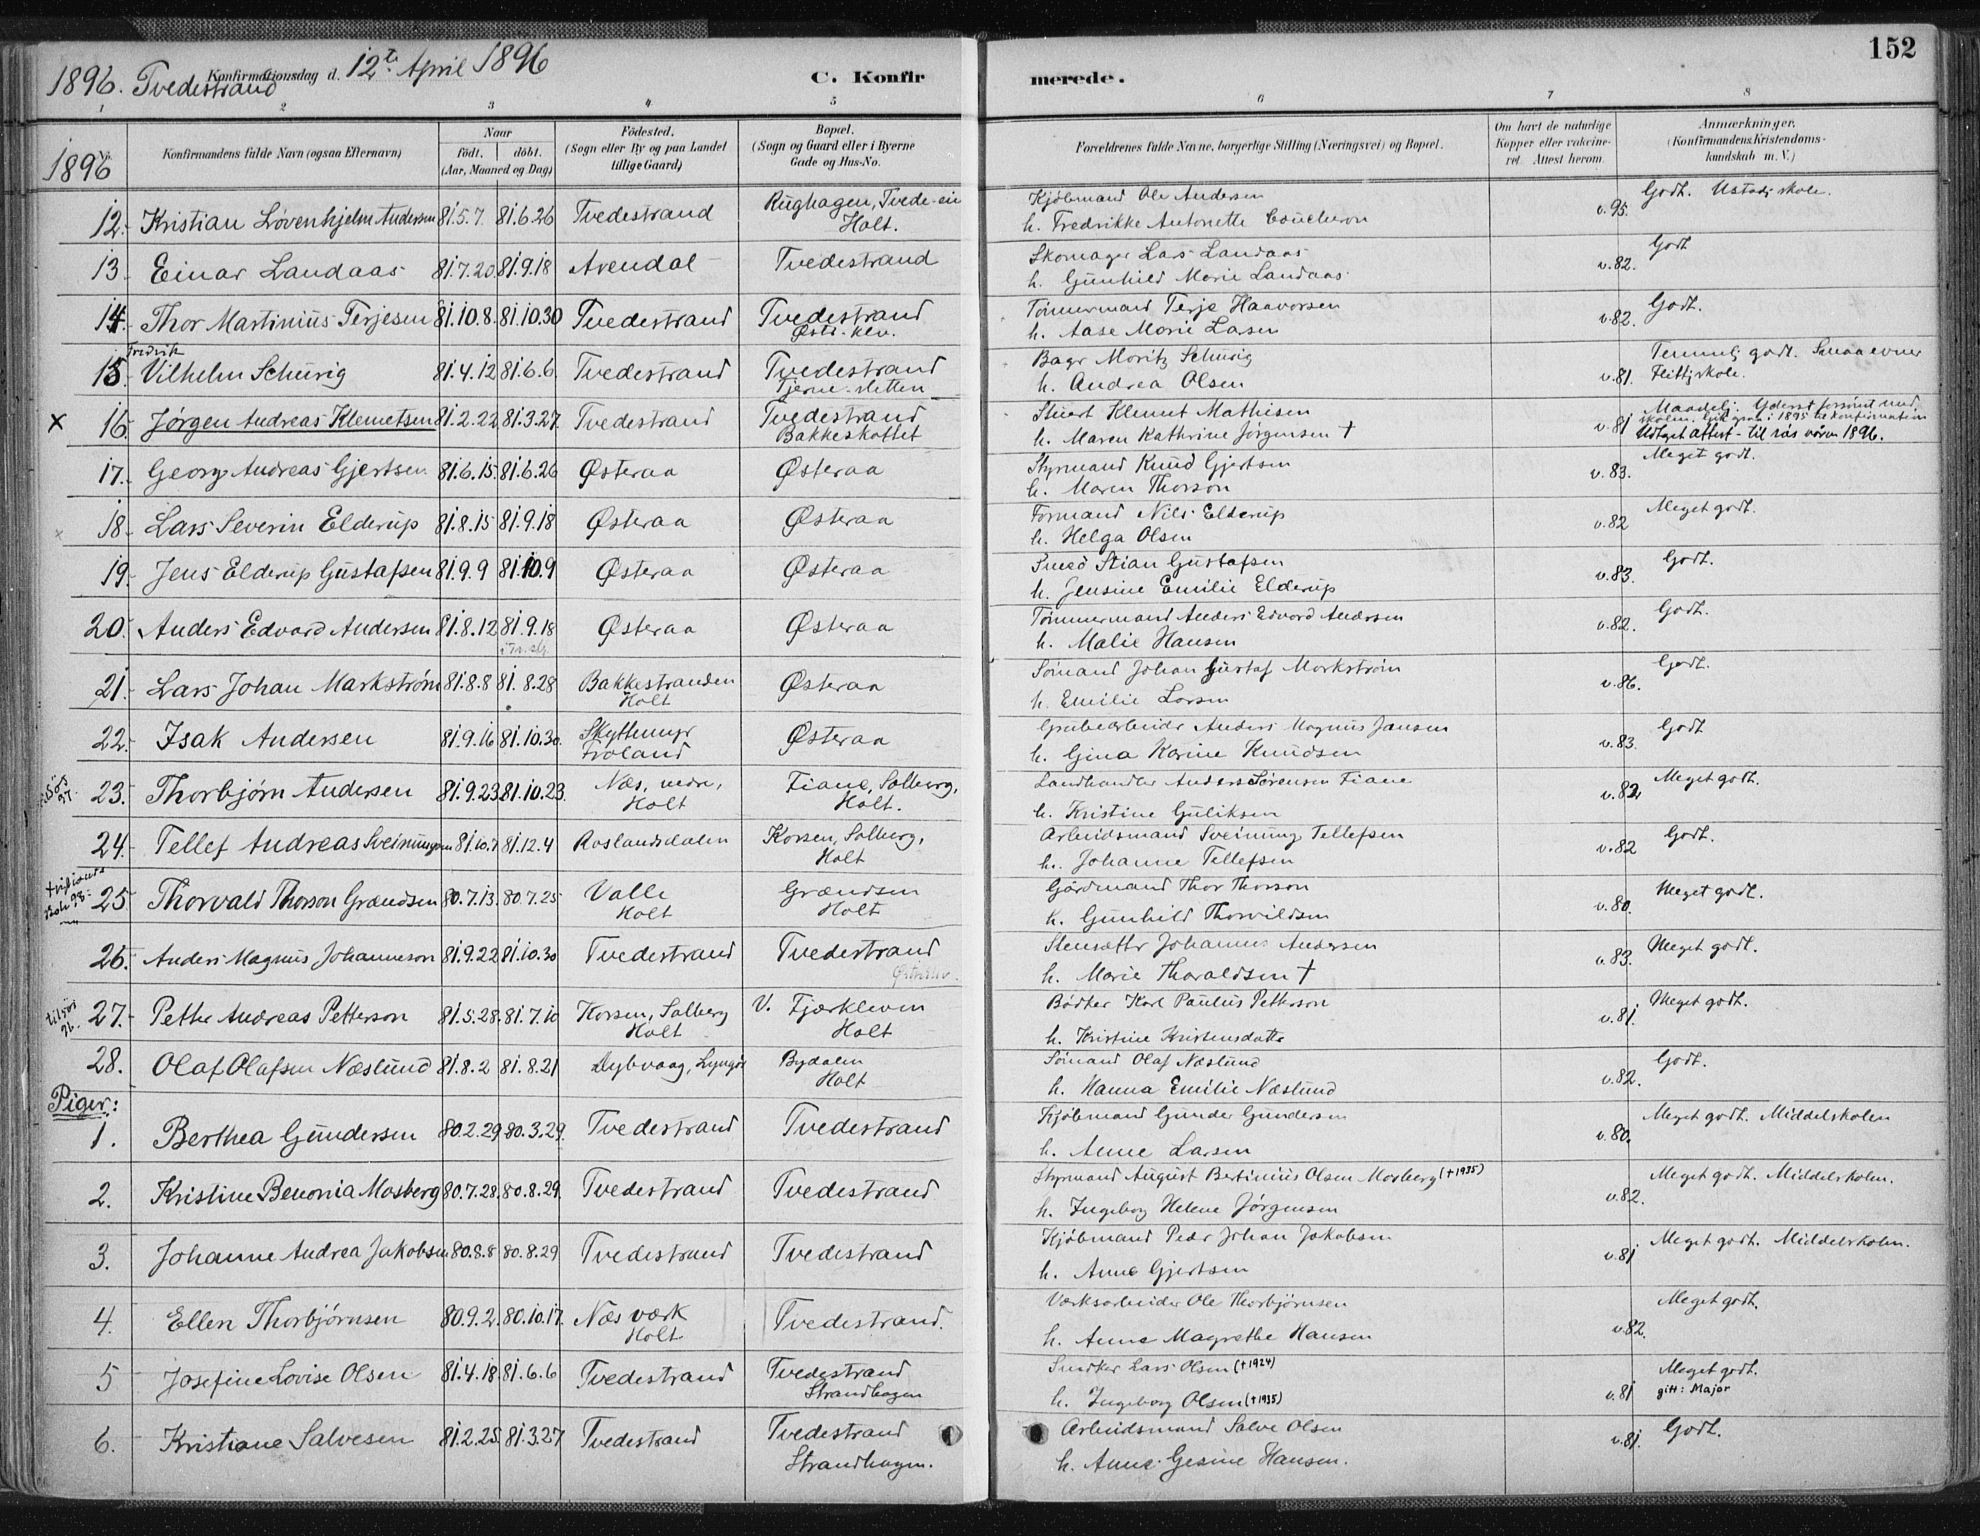 152
1896. Tvedestrand
Konfirmationsdag d. 12te April 1896
C. Konfirmerede.
1 2 3 4 5 6 7 8
1896
Konfirmandens fulde Navn (ogsaa Efternavn)
Naar født, døbt. (Aar, Maaned og Dag)
Fødested. (Sogn eller By og paa Landet tillige Gaard)
Bopæl. (Sogn og Gaard eller i Byerne Gade og Hus-No.
Forældrenes fulde Navne, borgerlige Stilling (Næringsvei) og Bopæl.
Om havt de naturlige Kopper eller vaccineret. Attest herom.
Anmærkninger. (Konfirmandens Kristendomskundskab m. V.)
12. Kristian Løvenhjelm Andersen 81.5.7 81.6.26 Tvedestrand Rughagen, Holt. Kjøbmand Ole Andersen v.95. Godt.
h. Fredrikke Antonette Coucheron
13. Einar Landaas 81.7.20 81.9.18 Arendal Tvedestrand Skomager Lars Landaas v.82. Godt
h. Gunhild Marie Landaas
14. Thor Martinius Terjesen 81.10.8 81.10.30 Tvedestrand Tvedestrand Tømmermand Terje Haavorsen v.82. Godt.
h. Aase Marie Larsen
15 Fredrik Vilhelm Schurig 81.4.12 81.6.6. Tvedestrand Tvedestrand Tjernesletten Bager Moritz Schurig v.81. Temmelig godt. Smaa evner
h. Andrea Olsen Flittig skole.
x 16. Jørgen Andreas Klemetsen 81.2.22 81.3.27 Tvedestrand Tvedestrand Bakkeskottet Stuert Klemet Mathisen v.81 Maadelig. Yderst forsømt med skolen. i 1895 konfirmation
h. Maren Kathrine Jørgensen † Udtaget attest - til 1896.
17. Georg Andreas Gjertsen 81.6.15. 81.6.26 Østeraa Østeraa Styrmand Knud Gjertsen v.83. Meget godt.
h. Maren Thorson
18. Lars Severin Elderup 81.8.15 81.9.18 Østeraa Østeraa Formand Nils Elderup v.82 Meget godt.
h. Helga Olsen
19. Jens Elderup Gustafsen 81.9.9 81.10.9 Østeraa Østeraa Smed Stian Gustafsen v.83. Godt.
h. Jensine Emilie Elderup
20. Anders Edvard Andersen 81.8.12 81.9.18 Østeraa Østeraa Tømmermand Anders Edvard Andersen v.82. Godt.
h. Malie Hansen
21. Lars Johan Markstrøm 81.8.8 81.8.28 Bakkestranden Holt Østeraa Sømand Johan Gustaf Markstrøm v.86. Godt.
h. Emilie Larsen
22. Isak Andersen 81.9.16 81.10.30. Skyttemyr Froland Østeraa Grubearbeider Anders Magnus Jansen v.83. Godt
h. Gina Karine Knudsen
23. Thorbjørn Andersen 81.9.23. 81.10.23. Næs, nedre, Holt Fiane, Solberg, Holt. Landhandler Anders Sørensen Fiane v.82. Meget godt.
h. Kristine Guliksen
24. Tellef Andreas Sveinungsen 81.10.7 81.12.4 Roslandsdalen Korsen, Solberg, Holt Arbeidsmand Sveinung Tellefsen v.82 Godt.
h. Johanne Tellefsen
25 Thorvald Thorson Grændsen 80.7.13. 80.7.25 Valle Holt Grændsen Holt Gårdmand Thor Thorson v.80. Meget godt.
h. Gunhild Thorvildsen
26. Anders Magnus Johanneson 81.9.22 81.10.30 Tvedestrand Tvedestrand Stensætter Johannes Andersen v.83. Meget godt.
h. Marie Tharaldsen †
27. Petter Andreas Petterson 81.5.28. 81.7.10 Korsen, Solberg Holt V. Fjærkleven Holt Bødker Karl Paulus Petterson v.81. Meget godt.
h. Kristine Kristensdatter
28. Olaf Olafsen Næslund 81.8.2 81.8.21 Dybvaag, Lyngør Bydalen Holt Sømand Olaf Næslund v.82. Godt.
h. Hanna Emilie Næslund
Piger:
1. Berthea Gundersen 80.2.29 80.3.29. Tvedestrand Tvedestrand Kjøbmand Gunder Gundersen v.80. Meget godt. Middelskolen
h. Anne Larsen
2. Kristine Benonia Mosberg 80.7.28. 80.8.29. Tvedestrand Tvedestrand Styrmand August Bertinius Olsen Mosberg (†1935) v.82. Meget godt. Middelskolen.
h. Ingeborg Helene Jørgensen
3. Johanne Andrea Jakobsen 80.8.8 80.8.29 Tvedestrand Tvedestrand Kjøbmand Peder Johan Jakobsen v.81 Meget godt. Middelskolen.
h. Anne Gjertsen
4. Ellen Thorbjørnsen 80.9.2. 80.10.17. Næs værk Holt Tvedestrand. Værksarbeider Ole Thorbjørnsen v.82. Meget godt.
h. Anne Magrethe Hansen
5 Josefine Lovise Olsen 81.4.18. 81.6.6 Tvedestrand Tvedestrand Strandhagen Snedker Lars Olsen (†1924) v.81 Meget godt.
h. Ingeborg Olsen (†1935) gift: Major
6. Kristiane Salvesen 81.2.25. 81.3.27 Tvedestrand Tvedestrand Strandhagen. Arbeidsmand Salve Olsen v.81. Godt.
h. Anne Gesine Hansen.